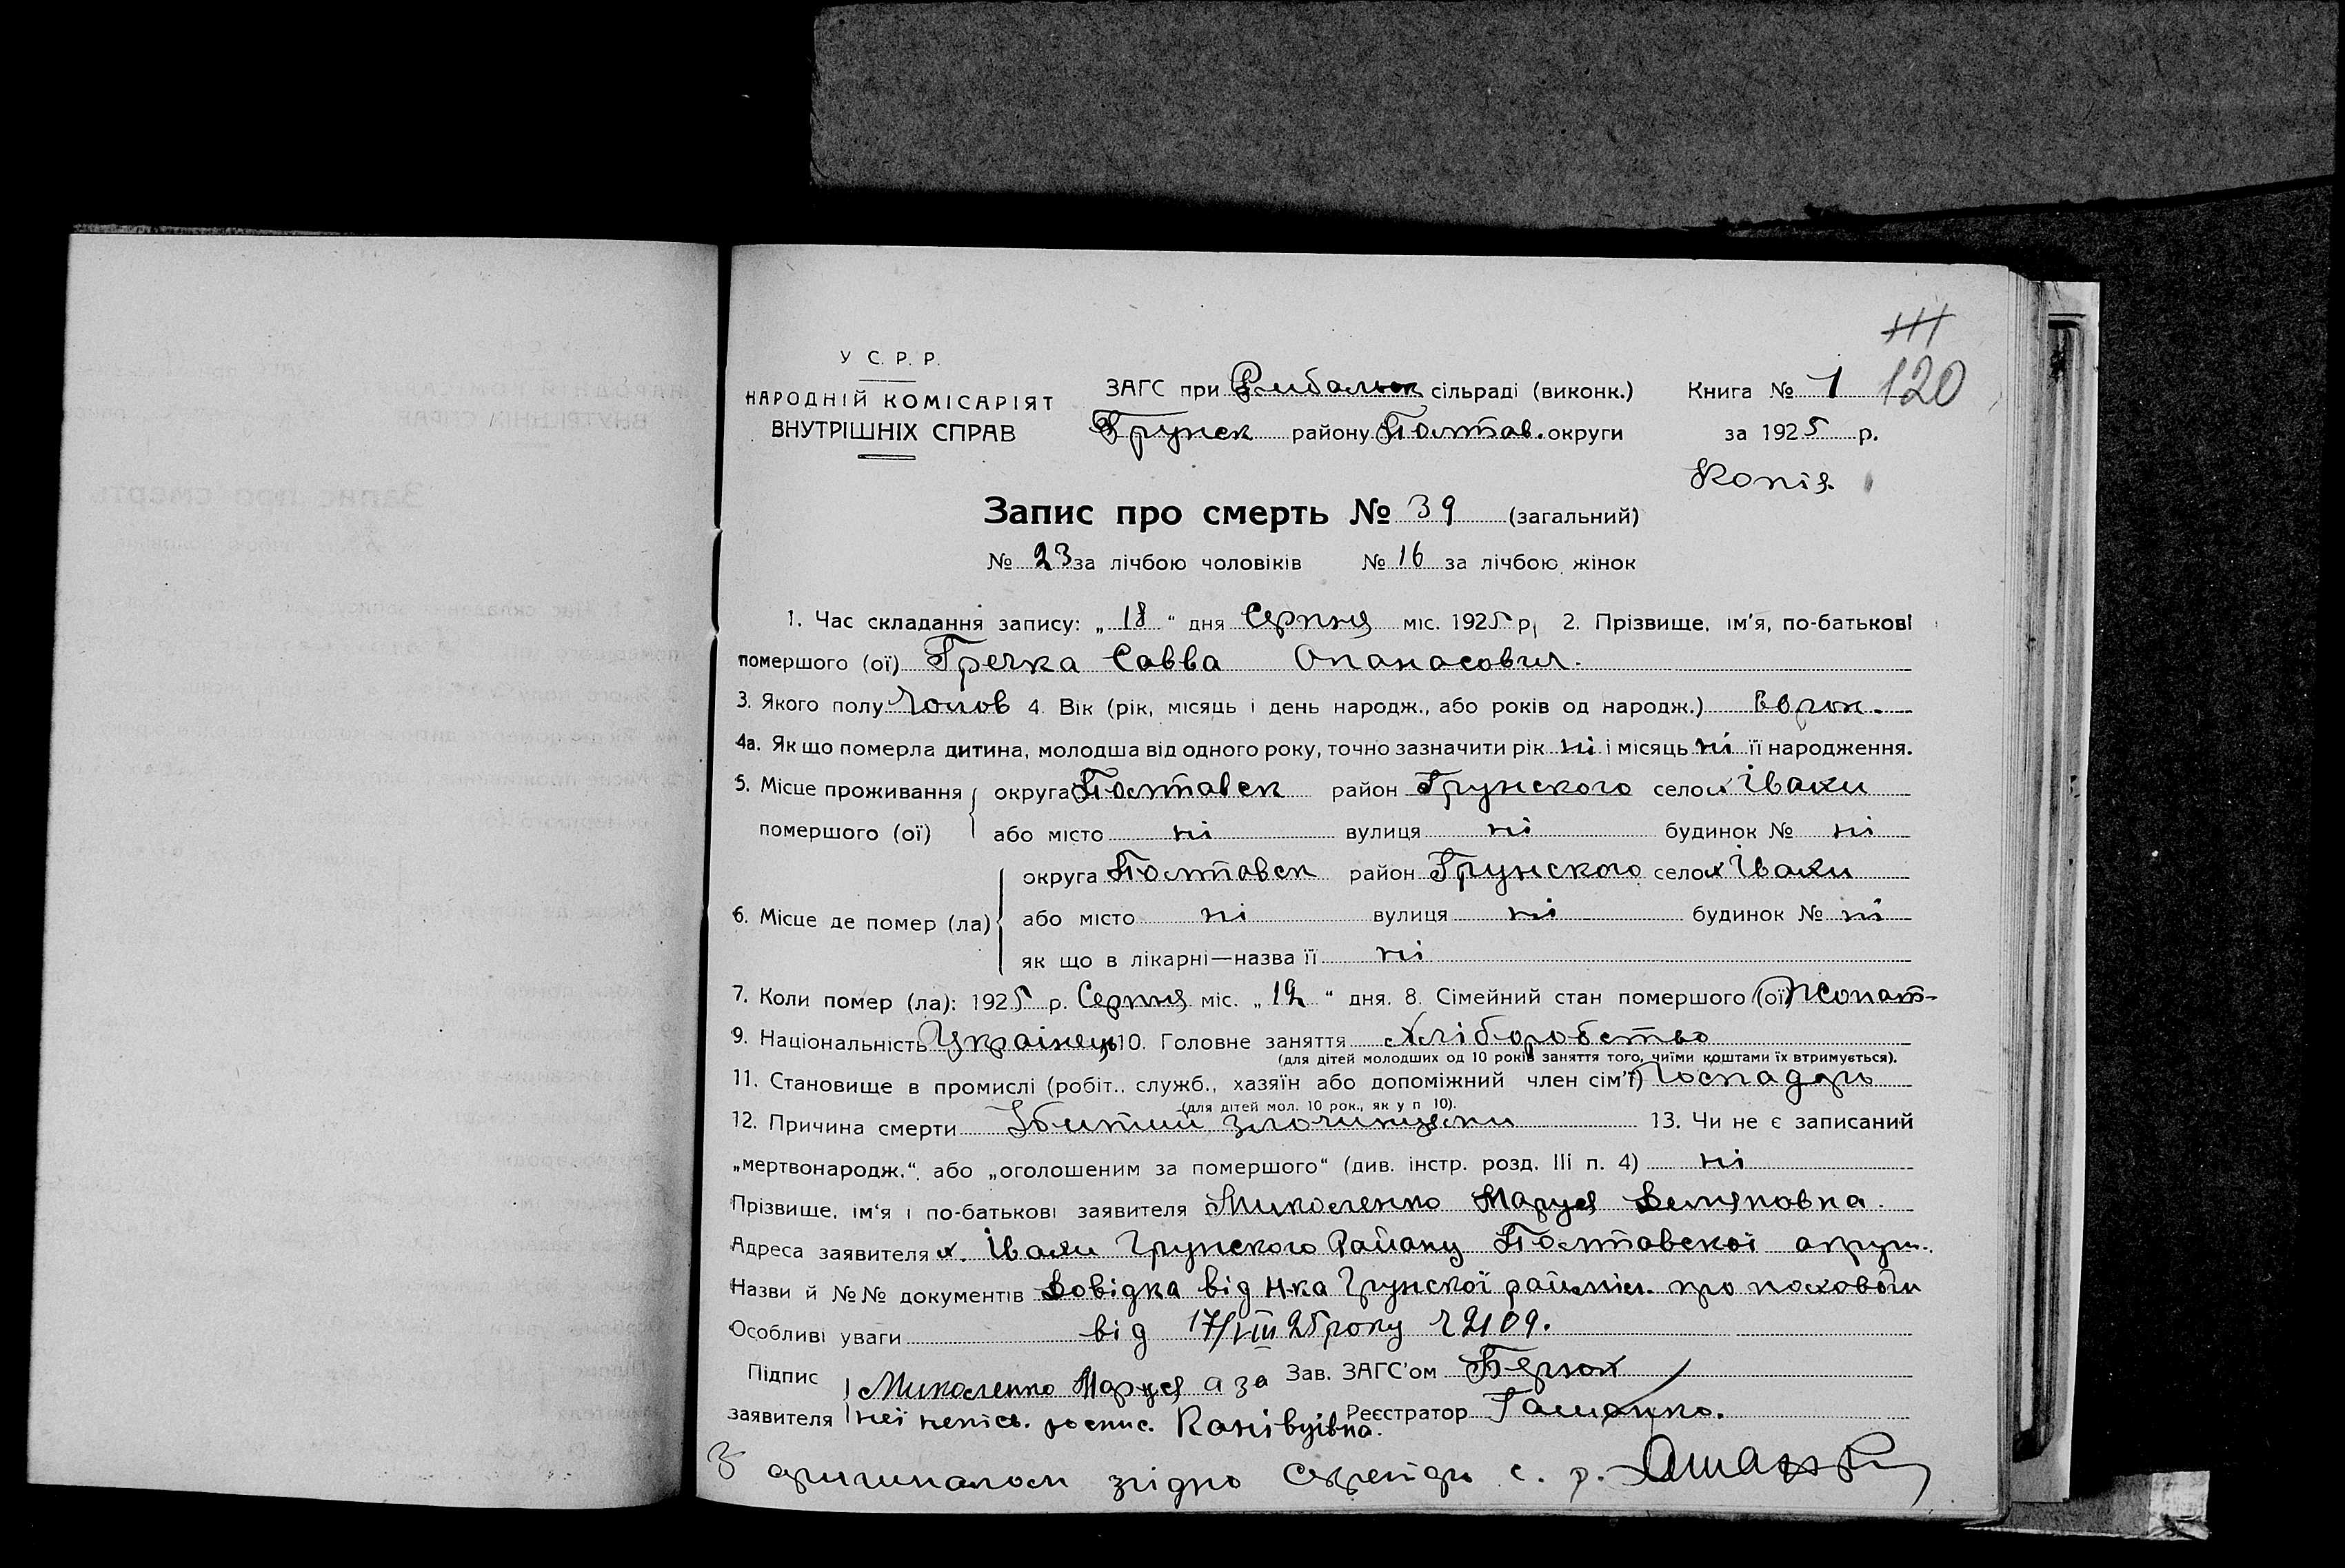 111
120
У С. Р. Р.
НАРОДНІЙ КОМІСАРІЯТ
ВНУТРІШНІХ СПРАВ
ЗАГС при Рибальск сільраді (виконк.) Книга № 1
Грунск району Полтав. округи за 1925 р.
Копія
Запис про смерть № 39 (загальний)
№ 23 за лічбою чоловіків № 16 за лічбою жінок
1. Час складання запису: „ 18 “ дня Серпня міс. 1925 р, 2. Прізвище, ім'я, по-батькові
помершого (ої) Гречка Савва Опанасович.
3. Якого полу Чолов 4. Вік (рік, місяць і день народж., або років од народж.)
4а. Як що померла дитина, молодша від одного року, точно зазначити рік ні і місяць ні її народження.
5. Місце проживання округа Полтавск район Грунского село х Іваки
помершого (ої) або місто ні вулиця ні будинок № ні
округа Полтавск район Грунского село х Іваки
6. Місце де помер (ла) або місто ні вулиця ні будинок № ні
як що в лікарні—назва її ні
7. Коли помер (ла): 1925 р. Серпня міс. „ 12 “ дня. 8. Сімейний стан помершого (ої) Жонат-
9. Національність Українець 10. Головне заняття Хліборобство
(для дітей молодших од 10 років заняття того, чиїми коштами їх втримується).
11. Становище в промислі (робіт., служб., хазяїн або допоміжний член сім'ї) Господарь
(для дітей мол. 10 рок., як у п 10).
12. Причина смерти Убитий злочинцями 13. Чи не є записаний
„мертвонародж.“, або „оголошеним за помершого“ (див. інстр. розд. III п. 4) ні
Прізвище, ім'я і по-батькові заявителя Миколенко Маруся Демяновна.
Адреса заявителя х. Іваки Грунского Району Полтавскої округи.
Назви й №№ документів Довідка від Н-ка Грунскої райміл. про похован
Особливі уваги від 17/VIII 25 року № 2109.
Підпис Миколенко Маруся а за Зав. ЗАГС'ом
заявителя неї непісь. роспис. Канівцівна. Реєстратор
З оригиналом згідно Секретарь с. р.